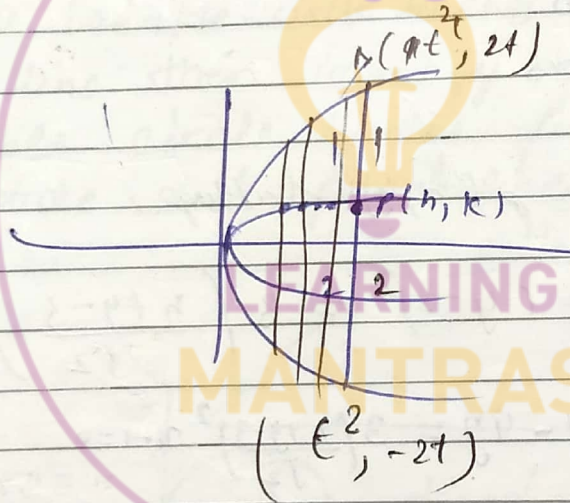 (t², 2t)
1 1
P(h, k)
2 2
LEARNING
MANTRAS
(t², -2t)